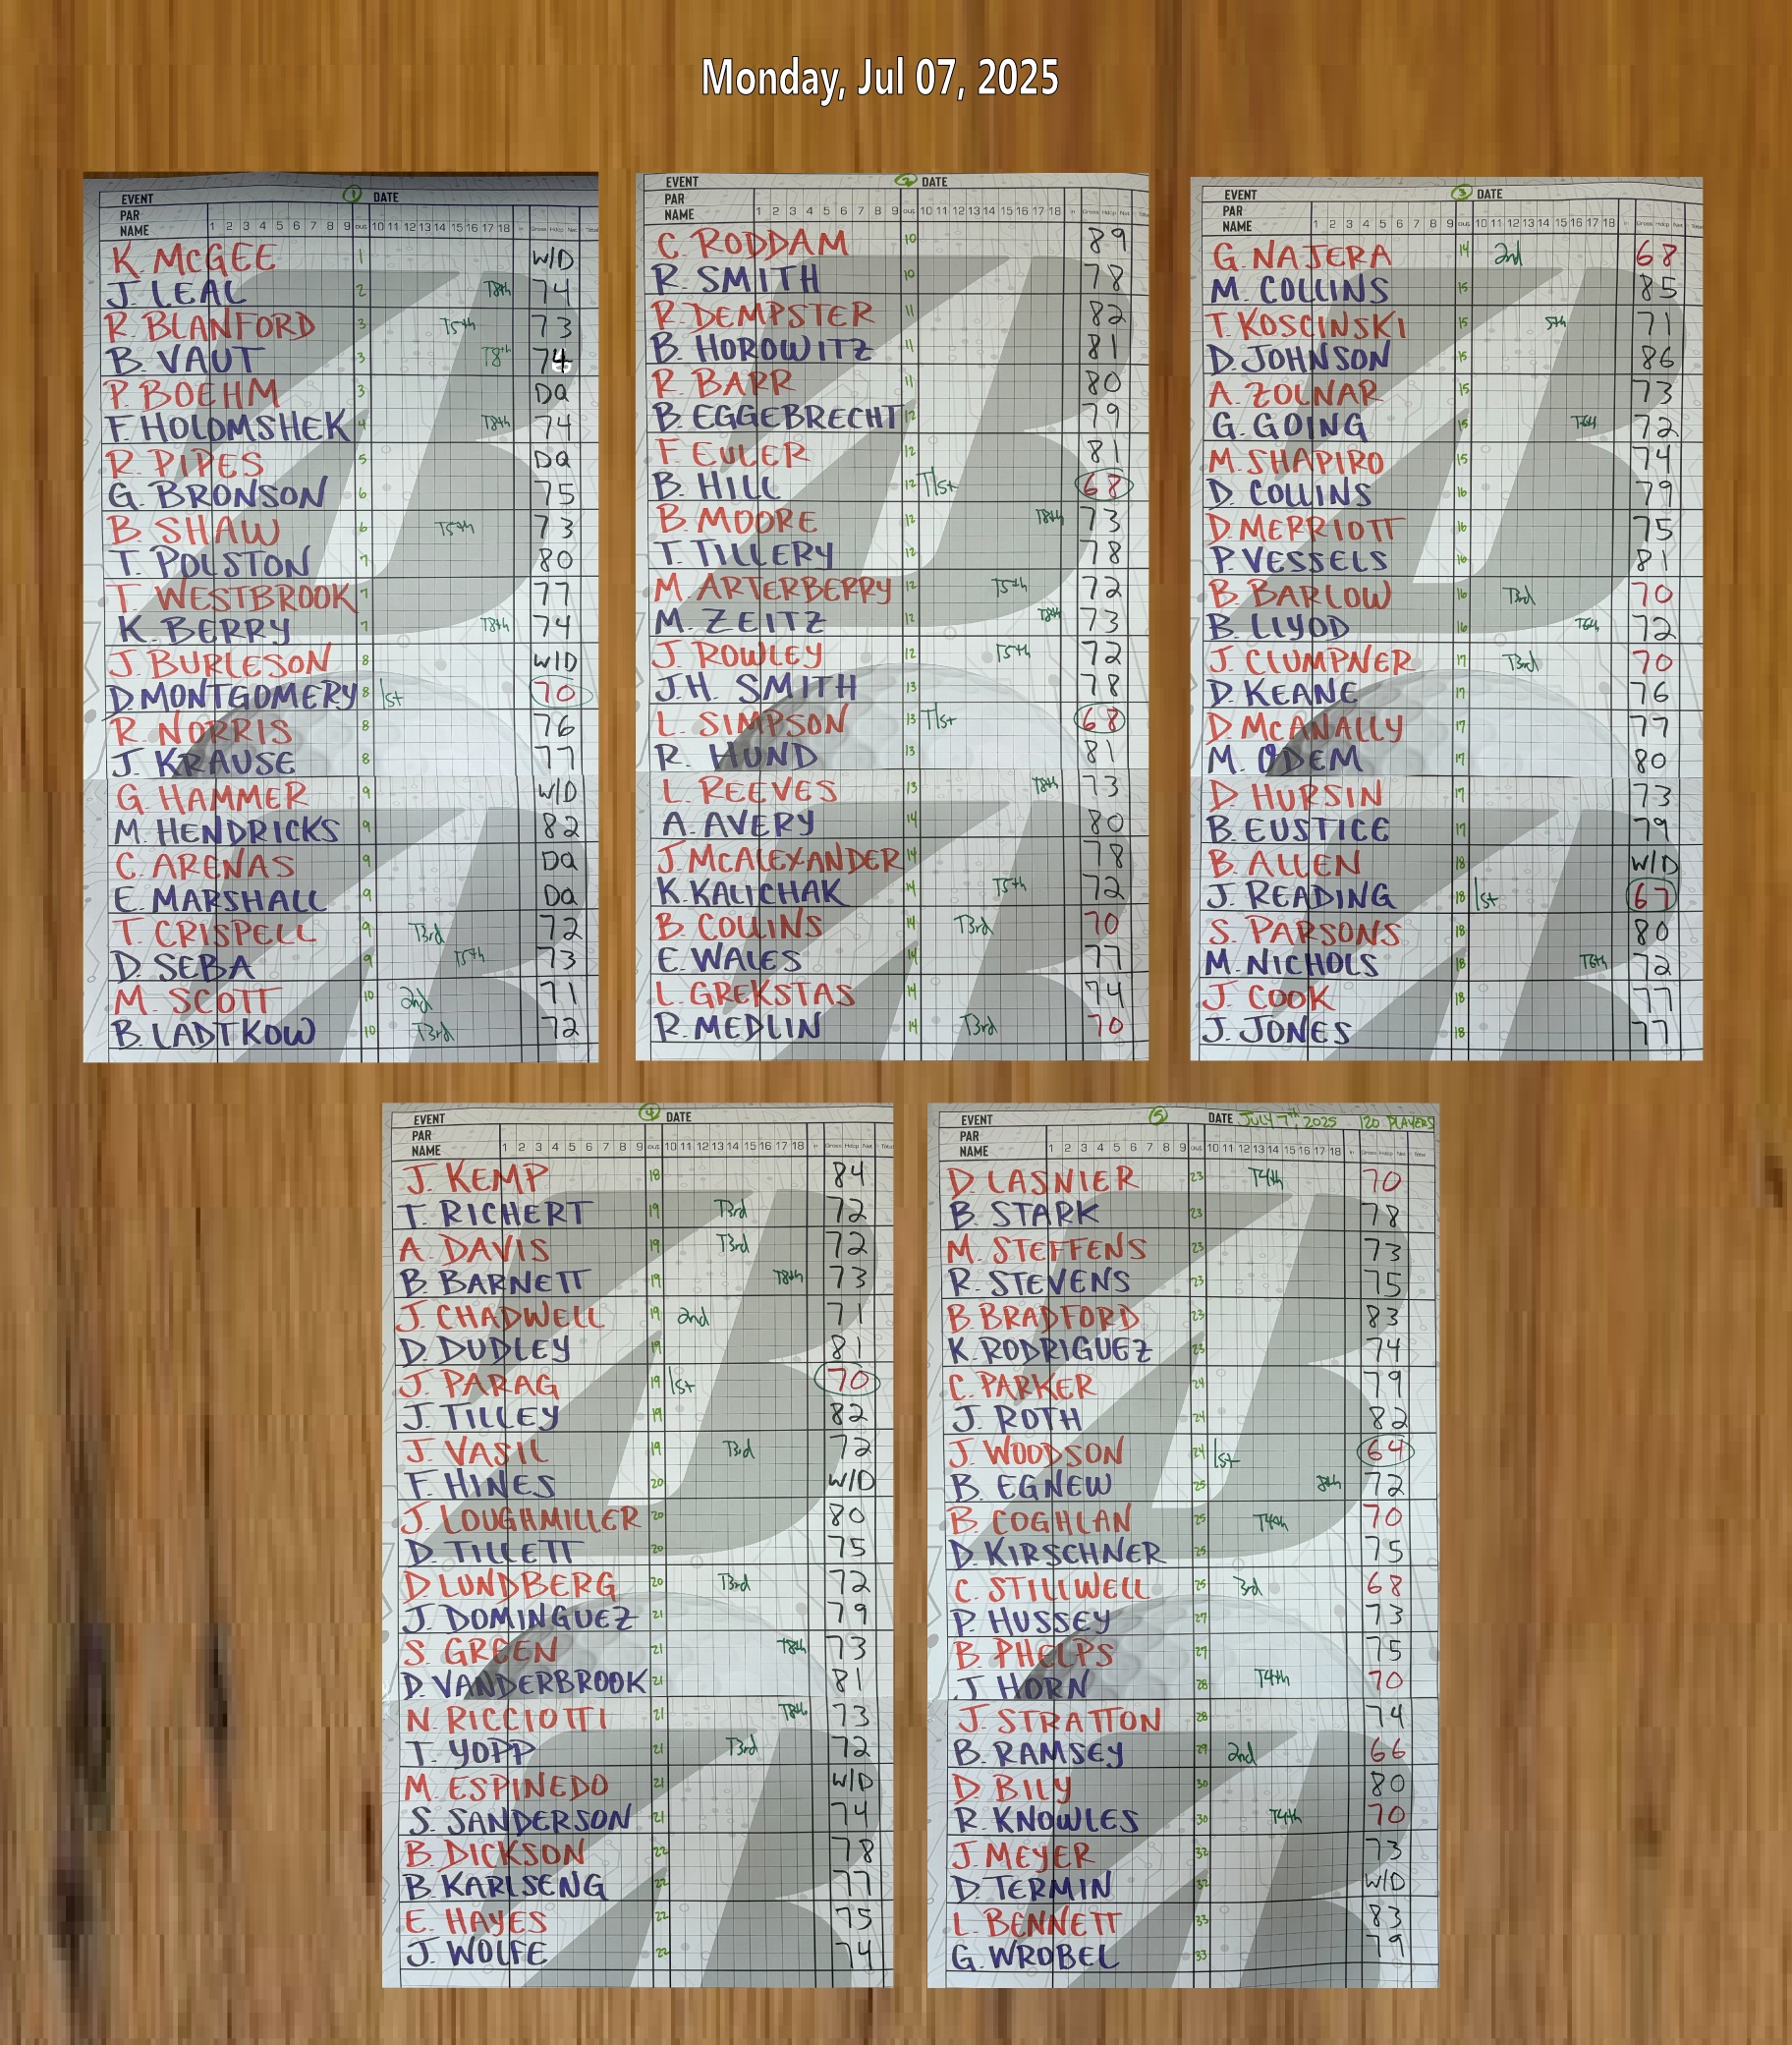 Monday, Jul 07, 2025
EVENT 1 DATE
PAR
NAME 1 2 3 4 5 6 7 8 9 out 10 11 12 13 14 15 16 17 18 In Gross Hdcp Net
K. MCGEE 1 W/D
J. LEAL 2 T8th 74
R. BLANFORD 3 T5th 73
B. VAUT 3 T8th 74
P. BOEHM 3 DQ
F. HOLOMSHEK 4 T8th 74
R. PIPES 5 DQ
G. BRONSON 6 75
B SHAW 6 T5th 73
T. POLSTON 7 80
T. WESTBROOK 7 77
K. BERRY 7 T8th 74
J. BURLESON 8 W/D
D. MONTGOMERY 8 1st 70
R. NORRIS 8 76
J. KRAUSE 8 77
G HAMMER 9 W/D
M. HENDRICKS 9 82
C. ARENAS 9 DQ
E. MARSHALL 9 DQ
T. CRISPELL 9 T3rd 72
D. SEBA 9 T5th 73
M. SCOTT 10 2nd 71
B. LADTKOW 10 T3rd 72
EVENT 2 DATE
PAR
NAME 1 2 3 4 5 6 7 8 9 out 10 11 12 13 14 15 16 17 18 In Gross Hdcp Net Total
C. RODDAM 10 89
R. SMITH 10 78
R. DEMPSTER 11 82
B. HOROWITZ 11 81
R. BARR 11 80
B. EGGEBRECHT 12 79
F. EULER 12 81
B. HILL 12 T1st 68
B. MOORE 12 T8th 73
T. TILLERY 12 78
M. ARTERBERRY 12 T5th 72
M. ZEITZ 12 T8th 73
J. ROWLEY 12 T5th 72
J.H. SMITH 13 78
L. SIMPSON 13 T1st 68
R. HUND 13 81
L. REEVES 13 T8th 73
A. AVERY 14 80
J. MCALEXANDER 14 78
K. KALICHAK 14 T5th 72
B. COLLINS 14 T3rd 70
E. WALES 14 77
L. GREKSTAS 14 74
R. MEDLIN 14 T3rd 70
EVENT 3 DATE
PAR
NAME 1 2 3 4 5 6 7 8 9 out 10 11 12 13 14 15 16 17 18 In Gross Hdcp Net Total
G. NAJERA 14 2nd 68
M. COLLINS 15 85
T. KOSCINSKI 15 5th 71
D. JOHNSON 15 86
A. ZOLNAR 15 73
G. GOING 15 T6th 72
M. SHAPIRO 15 74
D. COLLINS 16 79
D. MERRIOTT 16 75
P. VESSELS 16 81
B BARLOW 16 T3rd 70
B. LLYOD 16 T6th 72
J. CLUMPNER 17 T3rd 70
D. KEANE 17 76
D. MCANALLY 17 77
M. ODEM 17 80
D. HURSIN 17 73
B. EUSTICE 17 79
B. ALLEN 18 W/D
J. READING 18 1st 67
S. PARSONS 18 80
M. NICHOLS 18 T6th 72
J. COOK 18 77
J. JONES 18 77
EVENT 4 DATE
PAR
NAME 1 2 3 4 5 6 7 8 9 out 10 11 12 13 14 15 16 17 18 In Gross Hdcp Net Total
J. KEMP 18 84
T. RICHERT 19 T3rd 72
A. DAVIS 19 T3rd 72
B. BARNETT 19 T8th 73
J. CHADWELL 19 2nd 71
D. DUDLEY 19 81
J. PARAG 19 1st 70
J. TILLEY 19 82
J. VASIL 19 T3rd 72
F. HINES 20 W/D
J. LOUGHMILLER 20 80
D. TILLETT 20 75
D LUNDBERG 20 T3rd 72
J. DOMINGUEZ 21 79
S. GREEN 21 T8th 73
D. VANDERBROOK 21 81
N. RICCIOTTI 21 T8th 73
T. YOPP 21 T3rd 72
M. ESPINEDO 21 W/D
S. SANDERSON 21 74
B. DICKSON 22 78
B. KARLSENG 22 77
E. HAYES 22 75
J. WOLFE 22 74
EVENT 5 DATE JULY 7th, 2025 120 PLAYERS
PAR
NAME 1 2 3 4 5 6 7 8 9 out 10 11 12 13 14 15 16 17 18 In Gross Hdcp Net Total
D. LASNIER 23 T4th 70
B. STARK 23 78
M. STEFFENS 23 73
R. STEVENS 23 75
B. BRADFORD 23 83
K. RODRIGUEZ 23 74
C. PARKER 24 79
J. ROTH 24 82
J. WOODSON 24 1st 64
B. EGNEW 25 8th 72
B. COGHLAN 25 T4th 70
D. KIRSCHNER 25 75
C. STILLWELL 25 3rd 68
P. HUSSEY 27 73
B. PHELPS 27 75
J HORN 28 T4th 70
J. STRATTON 28 74
B. RAMSEY 29 2nd 66
D BILY 30 80
R. KNOWLES 30 T4th 70
J. MEYER 32 73
D. TERMIN 32 W/D
L. BENNETT 33 83
G. WROBEL 33 79